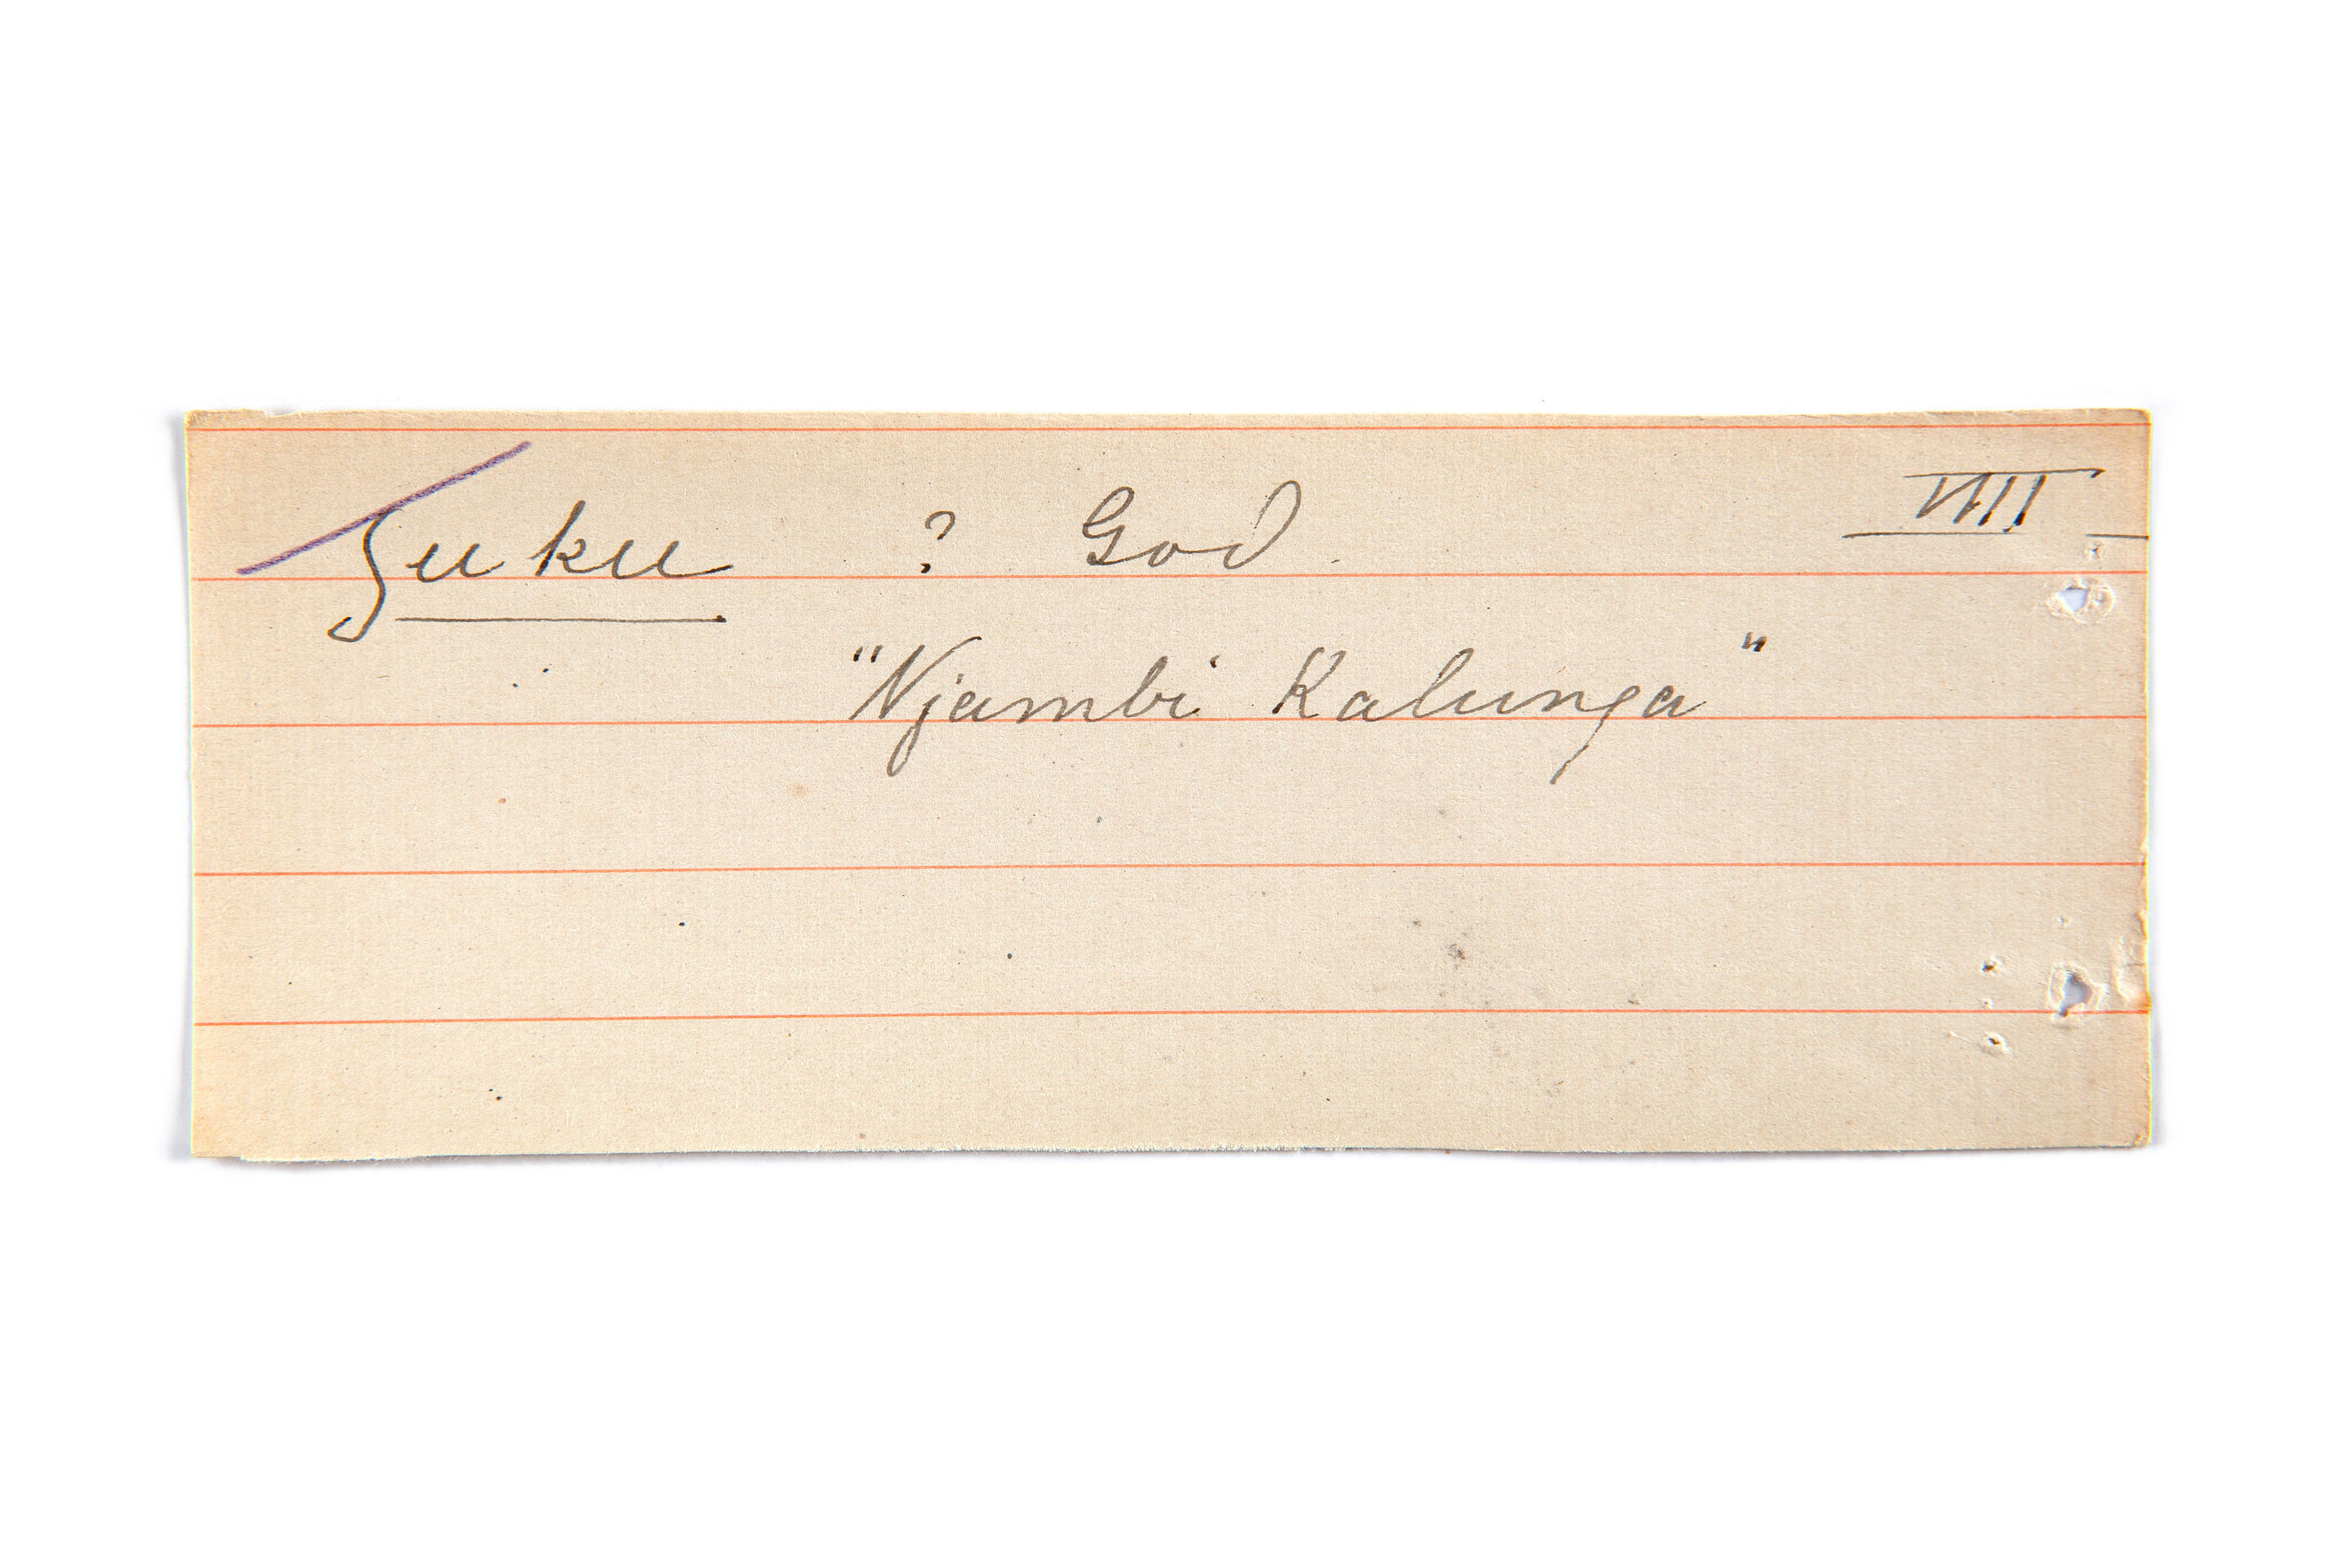 Suku ? God. VIII
"Njambi Kalunga"